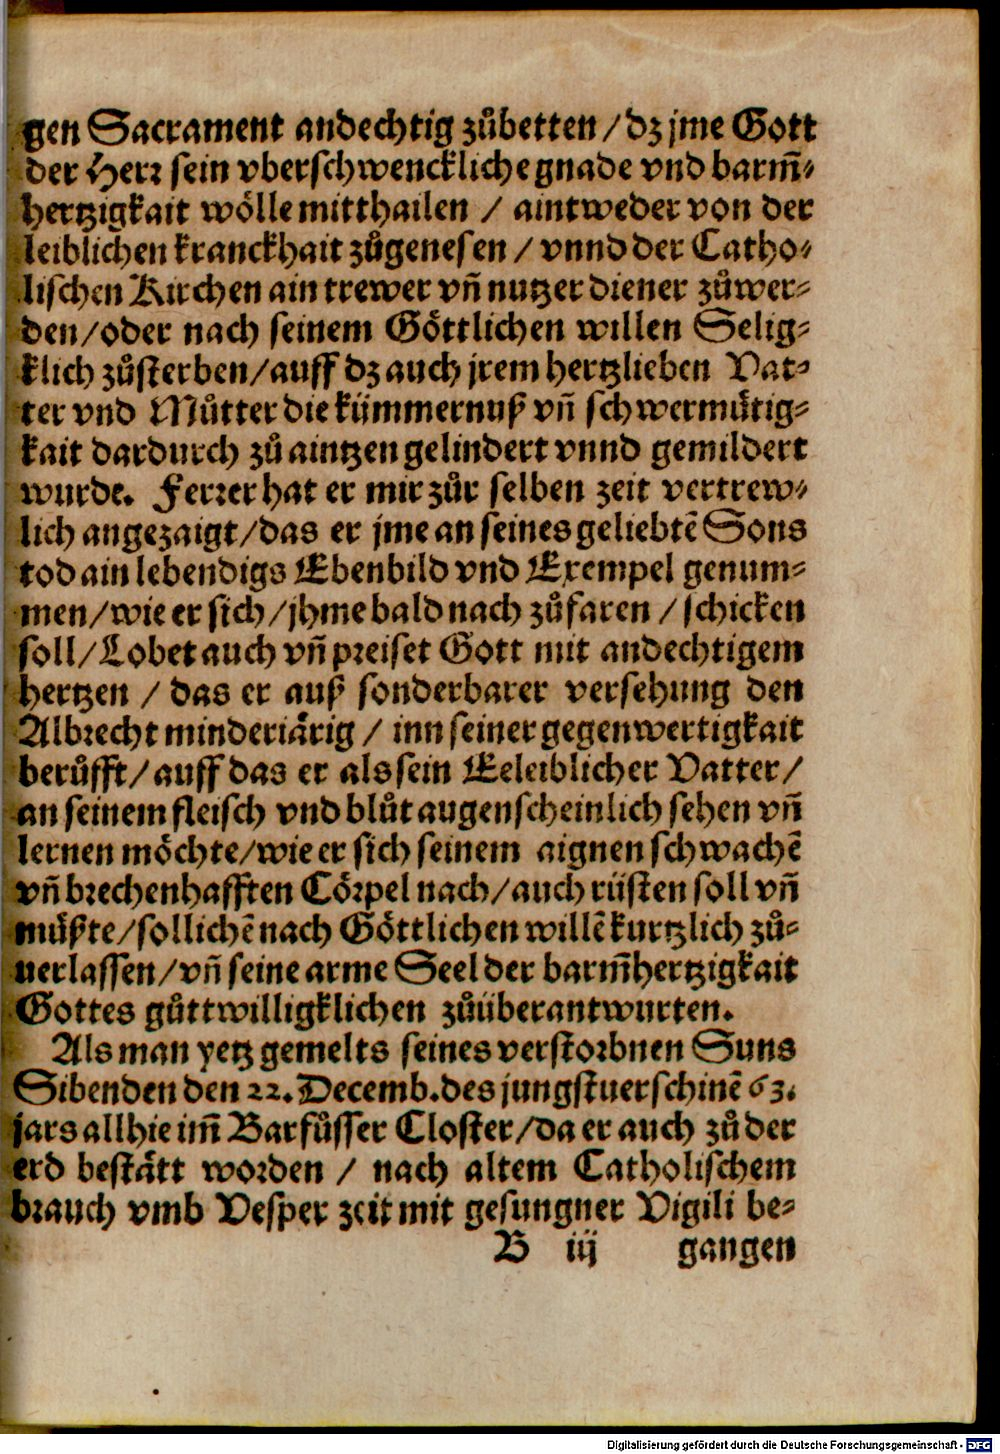 gen Sacrament andechtig zůbetten / dz jme Gott
der Herr sein vberschwenckliche gnade vnd barm̃-
hertzigkait wölle mitthailen / aintweder von der
leiblichen kranckhait zůgenesen / vnnd der Catho-
lischen Kirchen ain trewer vñ nutzer diener zůwer-
den / oder nach seinem Göttlichen willen Selig-
klich zůsterben / auff dz auch jrem hertzlieben Vat-
ter vnd Můtter die kümmernuß vñ schwermůtig-
kait dardurch zů aintzen gelindert vnnd gemildert
wurde. Ferrer hat er mir zůr selben zeit vertrew-
lich angezaigt / das er jme an seines geliebtẽ Sons
tod ain lebendigs Ebenbild vnd Exempel genum-
men / wie er sich / jhme bald nach zůfaren / schicken
soll / Lobet auch vñ preiset Gott mit andechtigem
hertzen / das er auß sonderbarer versehung den
Albrecht minderjärig / inn seiner gegenwertigkait
berůfft / auff das er als sein Eeleiblicher Vatter /
an seinem fleisch vnd blůt augenscheinlich sehen vñ
lernen möchte / wie er sich seinem aignen schwachẽ
vñ brechenhafften Cörpel nach / auch rüsten soll vñ
müßte / sollichẽ nach Göttlichen willẽ kurtzlich zů-
uerlassen / vñ seine arme Seel der barm̃hertzigkait
Gottes gůttwilligklichen zůüberantwurten.
Als man yetz gemelts seines verstorbnen Suns
Sibenden den 22. Decemb. des jungstuerschinẽ 63.
jars allhie im̃ Barfůsser Closter / da er auch zů der
erd bestätt worden / nach altem Catholischem
brauch vmb Vesper zeit mit gesungner Vigili be-
B iij gangen
Digitalisierung gefördert durch die Deutsche Forschungsgemeinschaft - DFG